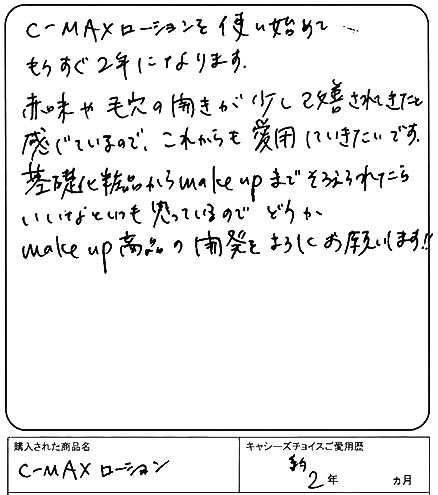 C-MAXローションを使い始めて
もうすぐ2年になります.
赤味や毛穴の開きが少し改善されてきたと
感じているので、これからも愛用していきたいです.
基礎化粧品からmake upまでそろえられたら
いいなといつも思っているので どうか
make up商品の開発をよろしくお願いします!!
購入された商品名
キャシーズチョイスご愛用歴
C-MAXローション
約
2年 カ月